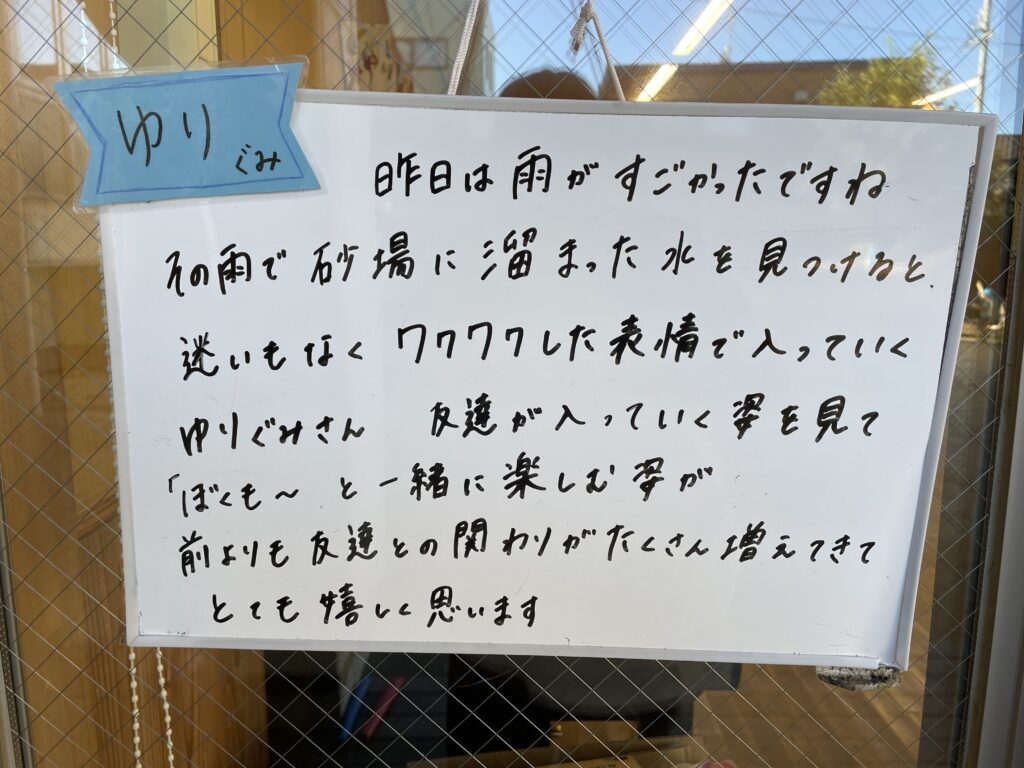 ゆり
ぐみ
昨日は雨がすごかったですね
その雨で砂場に溜まった水を見つけると、
迷いもなくワクワクした表情で入っていく
ゆりぐみさん 友達が入っていく姿を見て
「ぼくも〜 と一緒に楽しむ姿が
前よりも友達との関わりがたくさん増えてきて
とても嬉しく思います